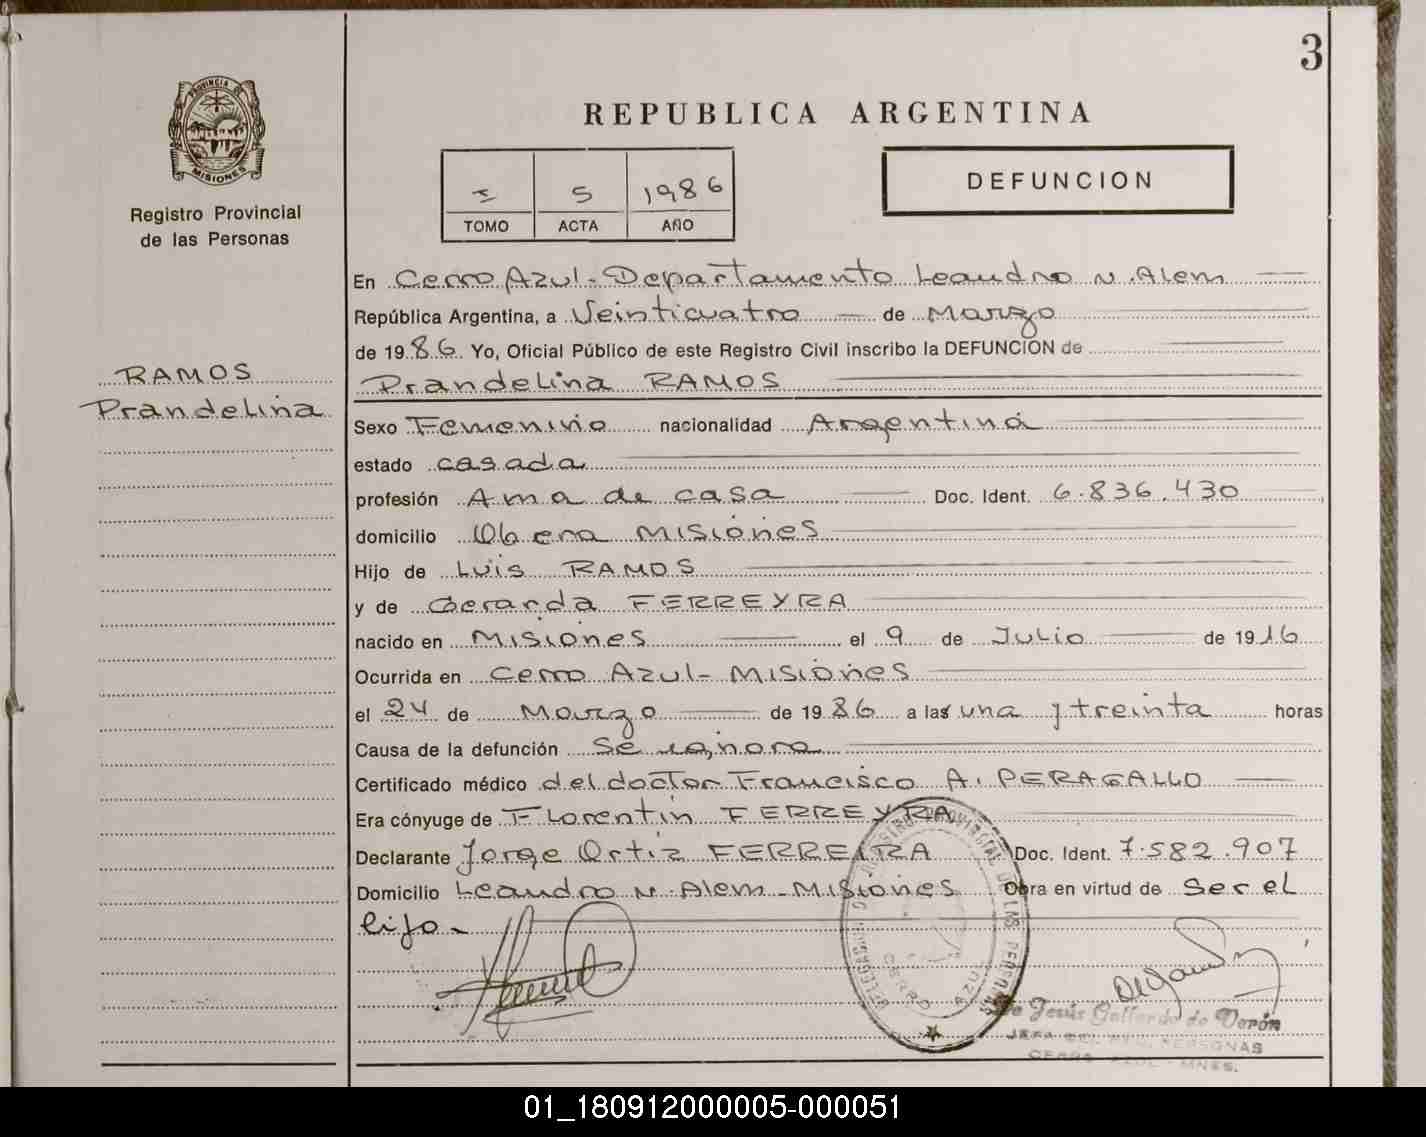 3
PROVINCIA DE
MISIONES
Registro Provincial
de las Personas
REPUBLICA ARGENTINA
I 5 1986
TOMO ACTA AÑO
DEFUNCION
RAMOS
Prandelina
En Cerro Azul-Departamento Leandro N. Alem
República Argentina, a Veinticuatro de Marzo
de 1986 Yo, Oficial Público de este Registro Civil inscribo la DEFUNCION de
Prandelina RAMOS
Sexo Femenino nacionalidad Argentina
estado casada
profesión Ama de casa Doc. Ident. 6.836.430
domicilio Obera Misiones
Hijo de Luis RAMOS
y de Gerarda FERREYRA
nacido en Misiones el 9 de Julio de 1916
Ocurrida en Cerro Azul- Misiones
el 24 de Marzo de 1986 a las una y treinta horas
Causa de la defunción Se ignora
Certificado médico del doctor Francisco A. PERAGALLO
Era cónyuge de Florentin FERREYRA
Declarante Jorge Ortiz FERREIRA Doc. Ident. 7.582.907
Domicilio Leandro N. Alem-Misiones Obra en virtud de Ser el
hijo-
REGISTRO PROVINCIAL DE LAS PERSONAS
CERRO AZUL
de Jesús Gallardo de Verón
JEFA DEL REG. PERSONAS
CERRO AZUL - MNES.
01_180912000005-000051